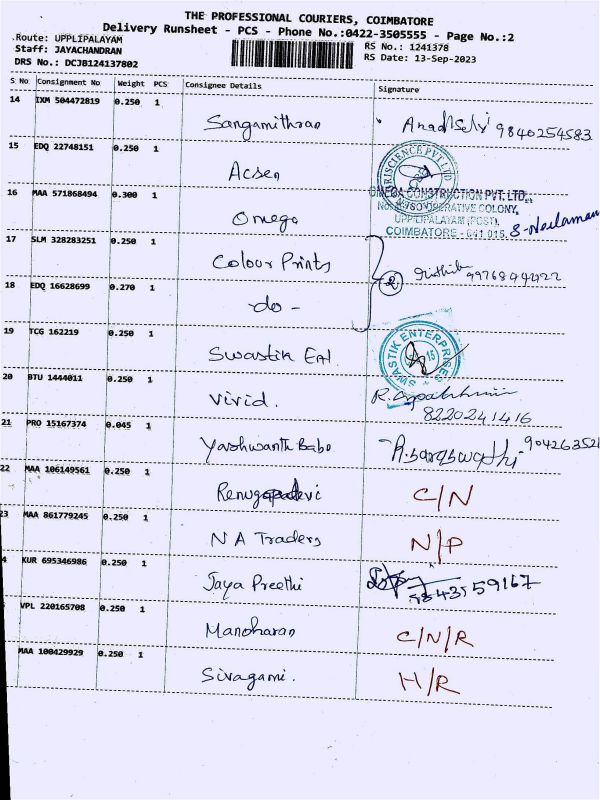 THE PROFESSIONAL COURIERS, COIMBATORE
Delivery Runsheet - PCS - Phone No.:0422-3505555 - Page No.:2
Route: UPPLIPALAYAM
RS No.: 1241378
Staff: JAYACHANDRAN
RS Date: 13-Sep-2023
DRS No.: DCJB124137802
S No Consignment No Weight PCS Consignee Details Signature
14 IXM 504472819 0.250 1
Sangamithran 9840254583
15 EDQ 22748151 0.250 1
Acsen
16 MAA 571868494 0.300 1
OMEGA CONSTRUCTION PVT. LTD.,
Omega
UPPILIPALAYAM (POST),
COIMBATORE - 641 015.
17 SLM 328283251 0.250 1
Colour Prints
2
18 EDQ 16628699 0.270 1
-do-
19 TCG 162219 0.250 1
Swastik Ent. SWASTIK ENTERPRISES
20 BTU 1444011 0.250 1
Vivid.
8220241416
21 PRO 15167374 0.045 1
Yashwanth Babo
22 MAA 106149561 0.250 1
Renugadevi C/N
23 MAA 861779245 0.250 1
N A Traders N/P
4 KUR 695346986 0.250 1
Jaya Preethi
VPL 220165708 0.250 1
Manoharan C/N/R
MAA 100429929 0.250 1
Sivagami. H/R